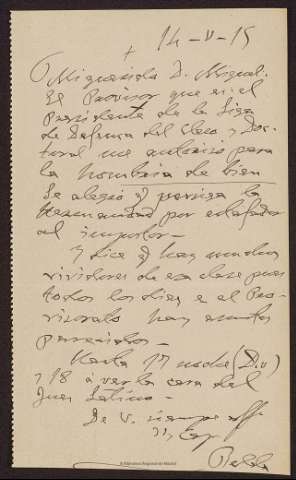 + 14-V-15
Mi querido D. Miguel.
El Provisor que es el
Presidente de la Liga
de Defensa del Clero y Doc-
toral me autorizo para
la hombria de bien
Se alegró q persiga la
Hermandad por estafador
al impostor.
Y dice q hay muchos
vividores de esa clase pues
todos los dias e al Pro-
visorato hay asuntos
parecidos.
Hasta 17 noche (D.v)
y 18 á ver la cara del
Juez Latino.
De V. siempre aff.
y Cap.
© Biblioteca Regional de Madrid